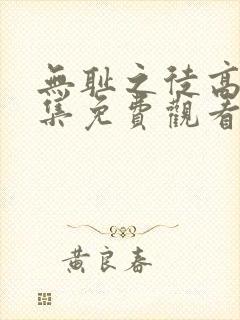 無耻之徒高
集免費觀看
黄良春